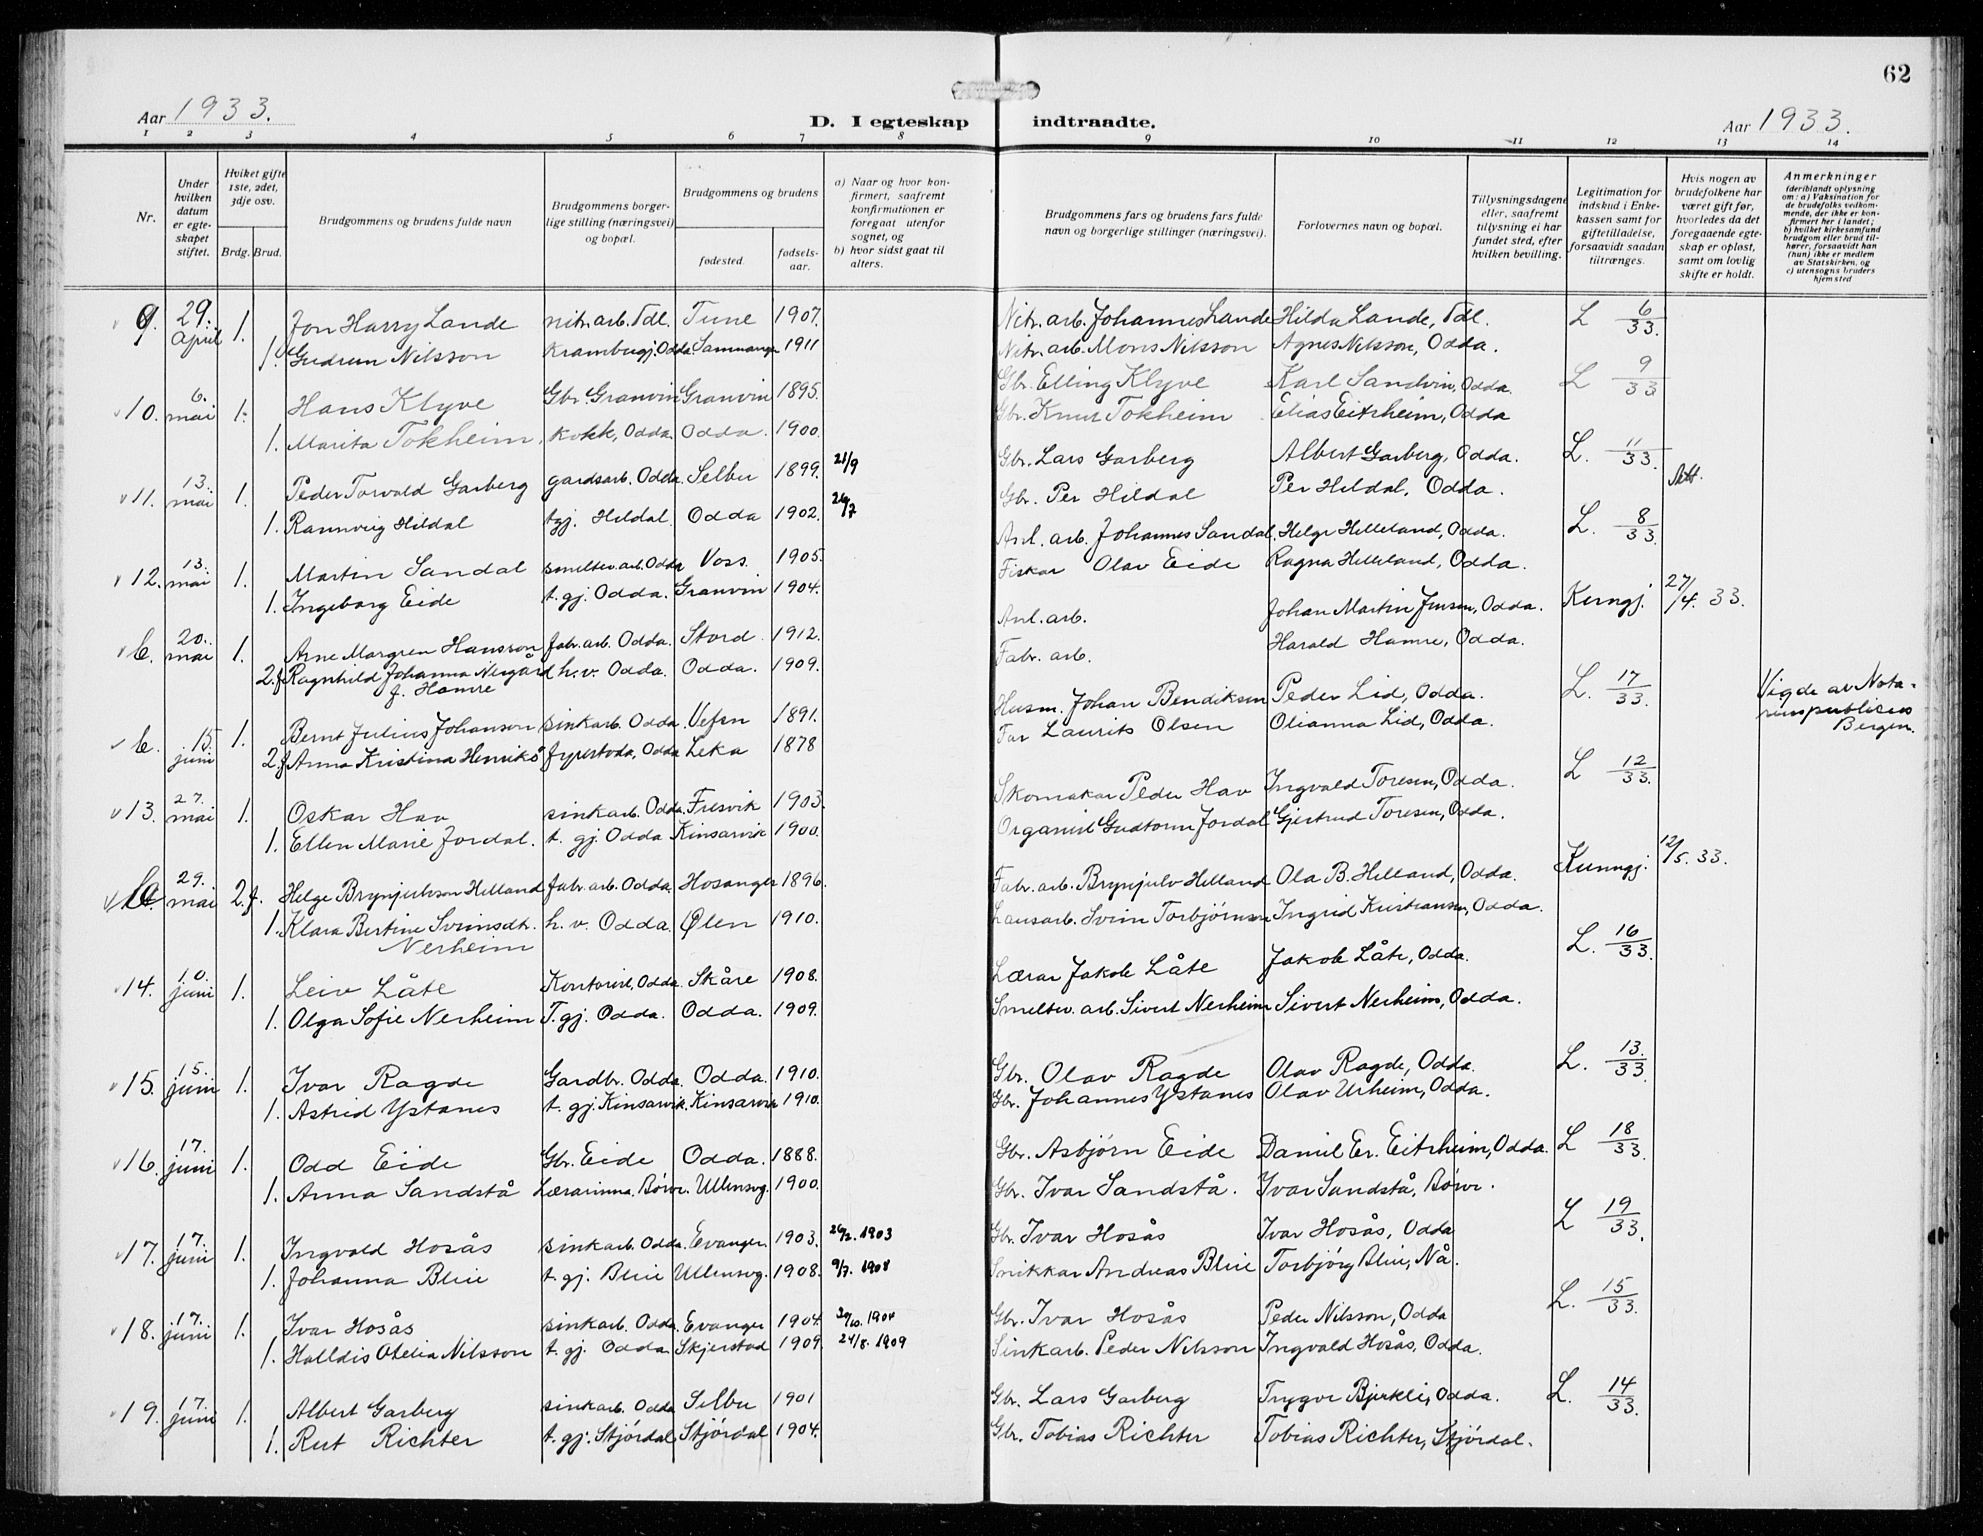 62
Aar 1933.
D. I egteskap indtraadte.
Aar 1933.
1 2 3 4 5 6 7 8 9 10 11 12 13 14
Nr.
Under hvilken datum er egteskapet stiftet.
Hviket gifte 1ste, 2det, 3dje osv.
Brdg. Brud.
Brudgommens og brudens fulde navn
Brudgommens borgerlige stilling (næringsvei) og bopæl.
Brudgommens og brudens
fødested.
fødselsaar.
a) Naar og hvor konfirmert, saafremt konfirmationen er foregaat utenfor sognet, og
b) hvor sidst gaat til alters.
Brudgommens fars og brudens fars fulde navn og borgerlige stillinger (næringsvei).
Forlovernes navn og bopæl.
Tillysningsdagene eller, saafremt tillysning ei har fundet sted, efter hvilken bevilling.
Legitimation for indskud i Enkekassen samt for giftetilladelse, forsaavidt saadan tiltrænges.
Hvis nogen av brudefolkene har været gift før, hvorledes da det foregaaende egteskap er opløst, samt om lovlig skifte er holdt.
Anmerkninger
(deriblandt oplysning om: a) Vaksination for de brudefolks vedkommende, der ikke er konfirmert her i landet; b) hvilket kirkesamfund brudgom eller brud tilhører, forsaavidt han (hun) ikke er medlem av Statskirken, og c) utensogns bruders hjemsted
9. 29. April 1. Jon Harry Lande nitr. arb. Tdl. Tune 1907. Nitr. arb. Johannes Lande Hilda Lande, Tdl. L 6/33.
1. Gudrun Nilsson Krambugj. Odda. Samnanger 1911 Nitr. arb. Mons Nilsson Agnes Nilsson, Odda.
10. 6. mai 1. Hans Klyve Gbr. Granvin Granvin 1895. Gbr. Elling Klyve Karl Sandvin, Odda. L 9/33
1. Marita Tokheim. Kokk, Odda Odda. 1900. Gbr. Knut Tokheim Elias Eitrheim, Odda
11. 13. mai 1. Peder Torvald Garberg gardsarb. Odda Selbu 1899. 21/9 Gbr. Lars Garberg Albert Garberg, Odda. L. 11/33.
1. Rannveig Hildal tgj. Hildal. Odda 1902. 26/7 Gbr. Per Hildal Per Hildal, Odda. Att.
12. 13. mai 1. Martin Sandal smeltev. arb. Odda Voss. 1905. Anl. arb. Johannes Sandal, Helge Helleland, Odda. L. 8/33.
1. Ingeborg Eide t. gj. Odda. Granvin 1904. Fiskar Olav Eide Ragna Helleland, Odda.
b. 20. mai 1. Arne Margren Hansson fabr. arb. Odda. Stord. 1912. Anl. arb. Johan Martin Jensen, Odda. Kunngj. 27/4. 33.
2. f. Ragnhild Johanna Nesgård f. Hamre h. v. Odda. Odda. 1909. Fabr. arb. Harald Hamre, Odda.
b. 15. juni 1. Bernt Julius Johanson sinkarb. Odda. Vefsn 1891. Husm. Johan Bendiksen Peder Lid, Odda. L. 17/33. Vigde av Nota-
2 f Anna Kristina Henriks fyrestoda, Odda Leka 1878 Far Laurits Olsen Olianna Lid, Odda. riuspublicus Bergen.
13. 27. mai 1. Oskar Hav sinkarb. Odda. Fresvik 1903. Skomakar Peder Hav Ingvald Toresen, Odda. L 12/33.
1. Ellen Marie Jordal. t. gj. Odda Kinsarvik 1900. Organist Gudtorm Jordal Gjertrud Toresen, Odda.
b. 29. mai 2. f. Helge Brynjulvson Helland fabr. arb. Odda Hosanger 1896. Fabr. arb. Brynjulv Helland Ola B. Helland, Odda. Kunngj. 12/5. 33.
1. Klara Bertine Svensdt. Nerheim h. v. Odda. Ølen 1910. Lausarb. Svein Torbjørnsen Ingrid Kristiansen, Odda.
14. 10. juni 1. Leiv Låte Kontorist, Odda Skåre 1908. Lærar Jakob Låte Jakob Låte, Odda. L. 16/33.
1. Olga Sofie Nerheim T. gj. Odda. Odda. 1909. Smeltev. arb. Sivert Nerheim Sivert Nerheim, Odda.
15. 15. juni 1. Ivar Ragde Gardbr. Odda. Odda. 1910. Gbr. Olav Ragde Olav Ragde, Odda. L. 13/33.
1. Astrid Ystanes t. gj. Kinsarvik. Kinsarvik 1910. Gbr. Johannes Ystanes Olav Urheim, Odda.
16. 17. juni 1. Odd Eide Gbr. Eide Odda. 1888. Gbr. Asbjørn Eide Daniel Er. Eitrheim, Odda. L 18/33.
1. Anna Sandstå Lærarinna, Børve. Ullensvg. 1900. Gbr. Ivar Sandstå. Ivar Sandstå, Børve.
17. 17. juni 1. Ingvald Hosås sinkarb. Odda. Evanger 1903. 26/2. 1903 Gbr. Ivar Hosås Ivar Hosås, Odda L 19/33.
1. Johanna Bleie t. gj. Bleie Ullensvg. 1908. 9/7. 1908 Snikkar Andreas Bleie Torbjörg Bleie, Nå.
18. 17. juni 1. Ivar Hosås sinkarb. Odda. Evanger 1904. 30/10. 1904 Gbr. Ivar Hosås Peder Nilsson, Odda L. 15/33.
1. Halldis Otelia Nilsson t. gj. Odda Skjerstad 1909. 24/8. 1909 Sinkarb. Peder Nilsson Ingvald Hosås, Odda.
19. 17. juni 1. Albert Garberg sinkarb. Odda Selbu 1901 Gbr. Lars Garberg Trygve Bjerkli, Odda. L. 14/33.
1. Rut Richter t. gj. Stjördal Stjördal 1904. Gbr. Tobias Richter Tobias Richter, Stjördal.